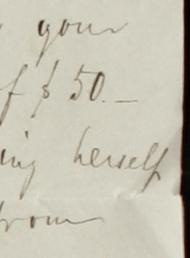 your
of $50.—
ing herself
from